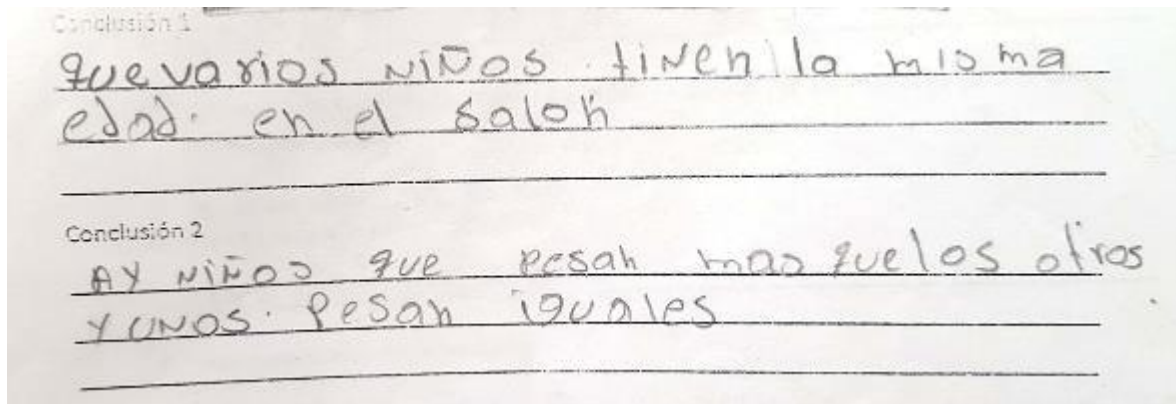 Conclusión 1
que varios niños tinen la misma
edad. en el salon
Conclusión 2
AY niños que pesan mas que los otros
Y UNOS. Pesan iguales